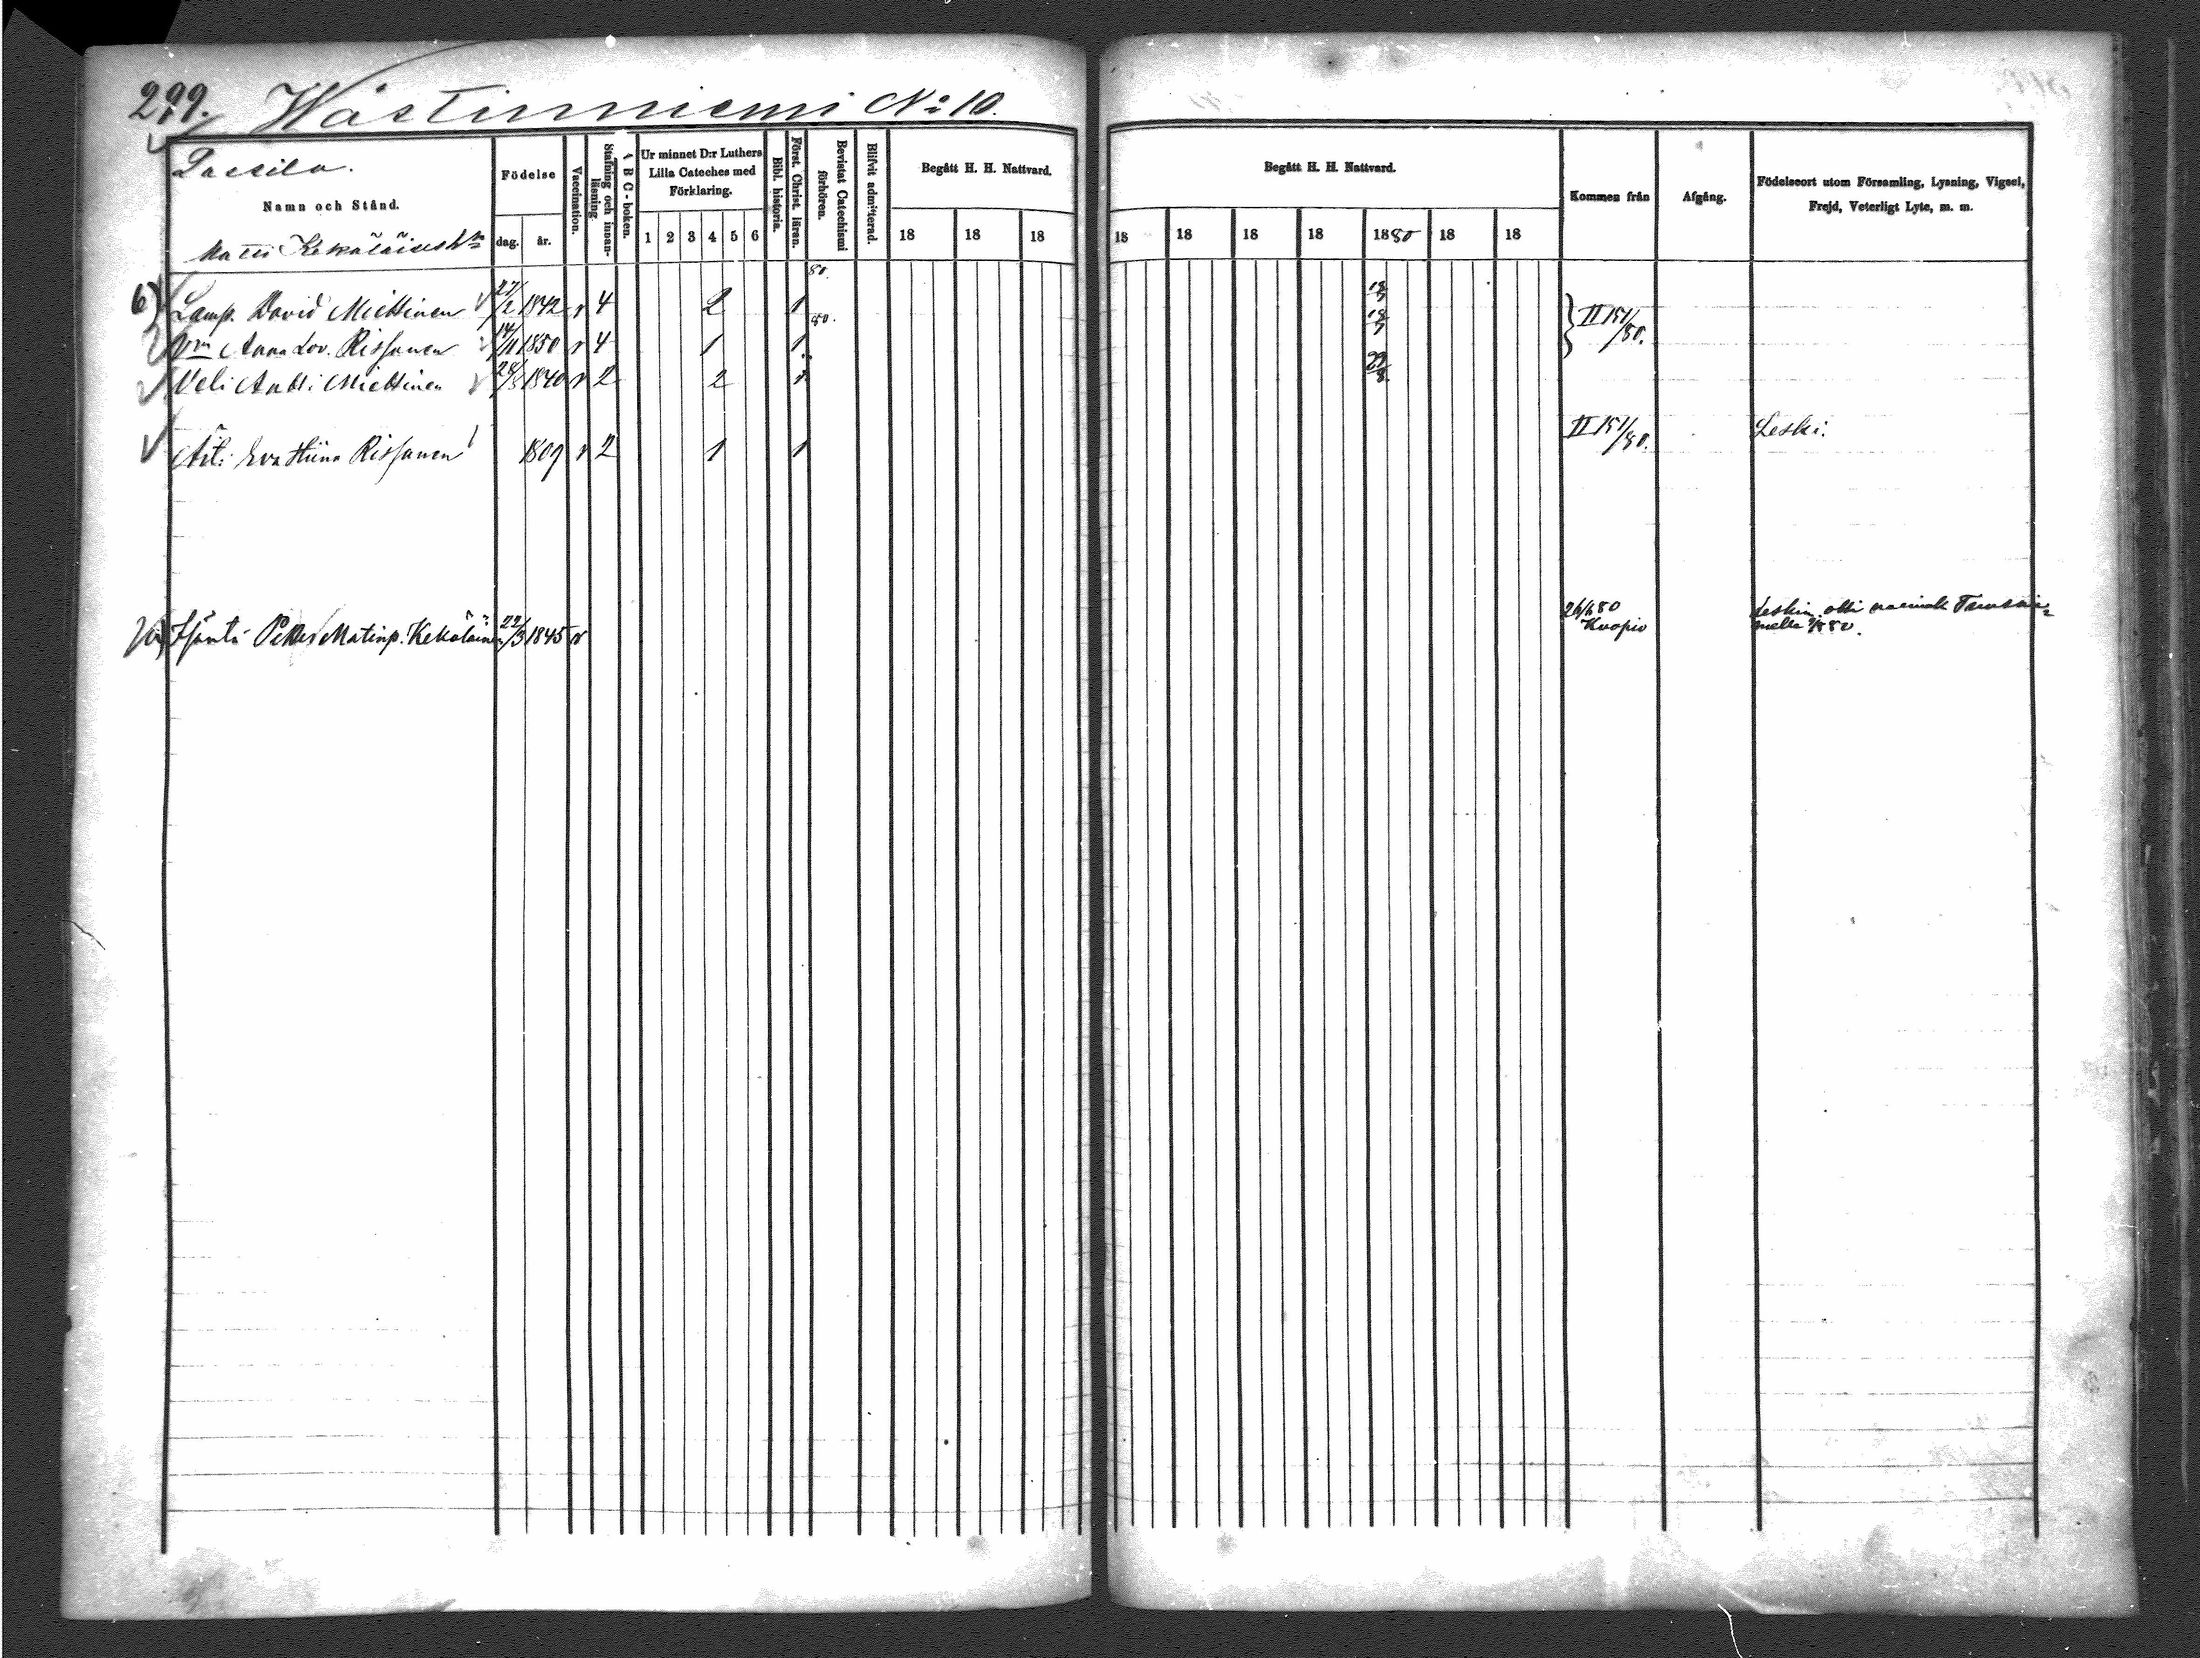 299. Wästinniemi No 10.
Födelse
Vaccination.
Stafning och innan-
läsning.
A B C - boken.
Ur minnet D:r Luthers
Lilla Cateches med
Förklaring.
Bibl. historia.
Först. Christ. läran.
Bevistat Catechismi
förhören.
Blifvit admitterad.
Begått H. H. Nattvard.
Begått H. H. Nattvard.
Kommen från
Afgång.
Födelseort utom Församling, Lysning, Vigsel,
Frejd, Veterligt Lyte, m. m.
Namn och Stånd.
Matti Kekäläisen
dag. år. 1 2 3 4 5 6 18 18 18 18 18 18 18 1880 18 18
80.
6) Lamp. David Miettinen 27/2 1842 v 4 2 1 18/7 II 151/80.
80.
Vm Anna Lov. Rissanen 14/11 1850 v 4 1 1 18/7
Veli Antti Miettinen 28/8 1840 v 2 2 1 29/8
Äiti Eva Stiina Rissanen 1809 v 2 1 1 II 151/80. Leski.
Petter Matinp. Kekäläinen 22/3 1845 v
Kuopio